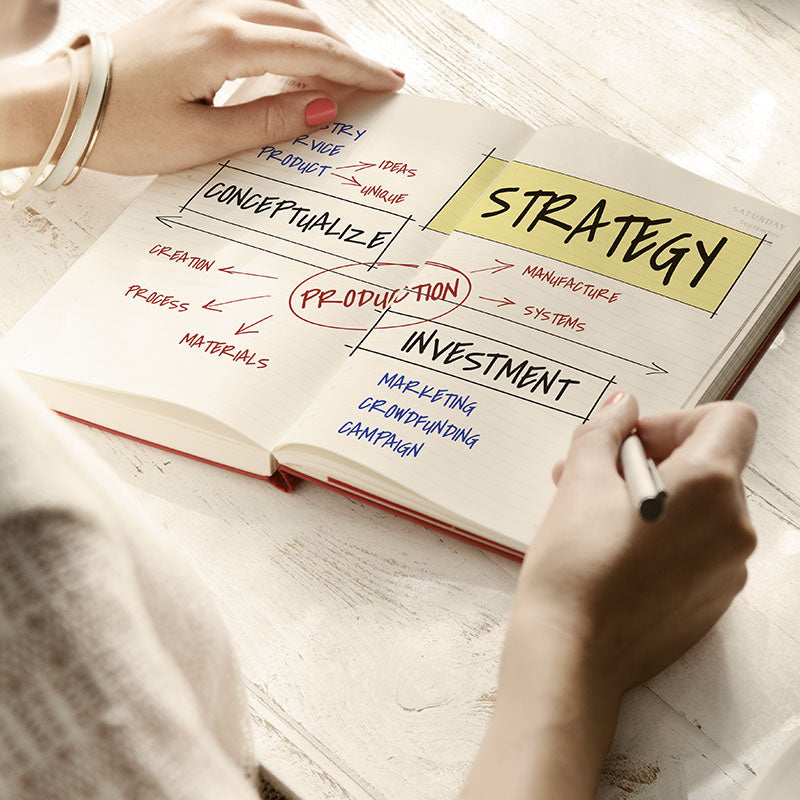 STRY
RVICE
PRODUCT
IDEAS
UNIQUE
CONCEPTUALIZE
CREATION
PROCESS
MATERIALS
PRODUCTION
SATURDAY
September
STRATEGY
MANUFACTURE
SYSTEMS
INVESTMENT
MARKETING
CROWDFUNDING
CAMPAIGN